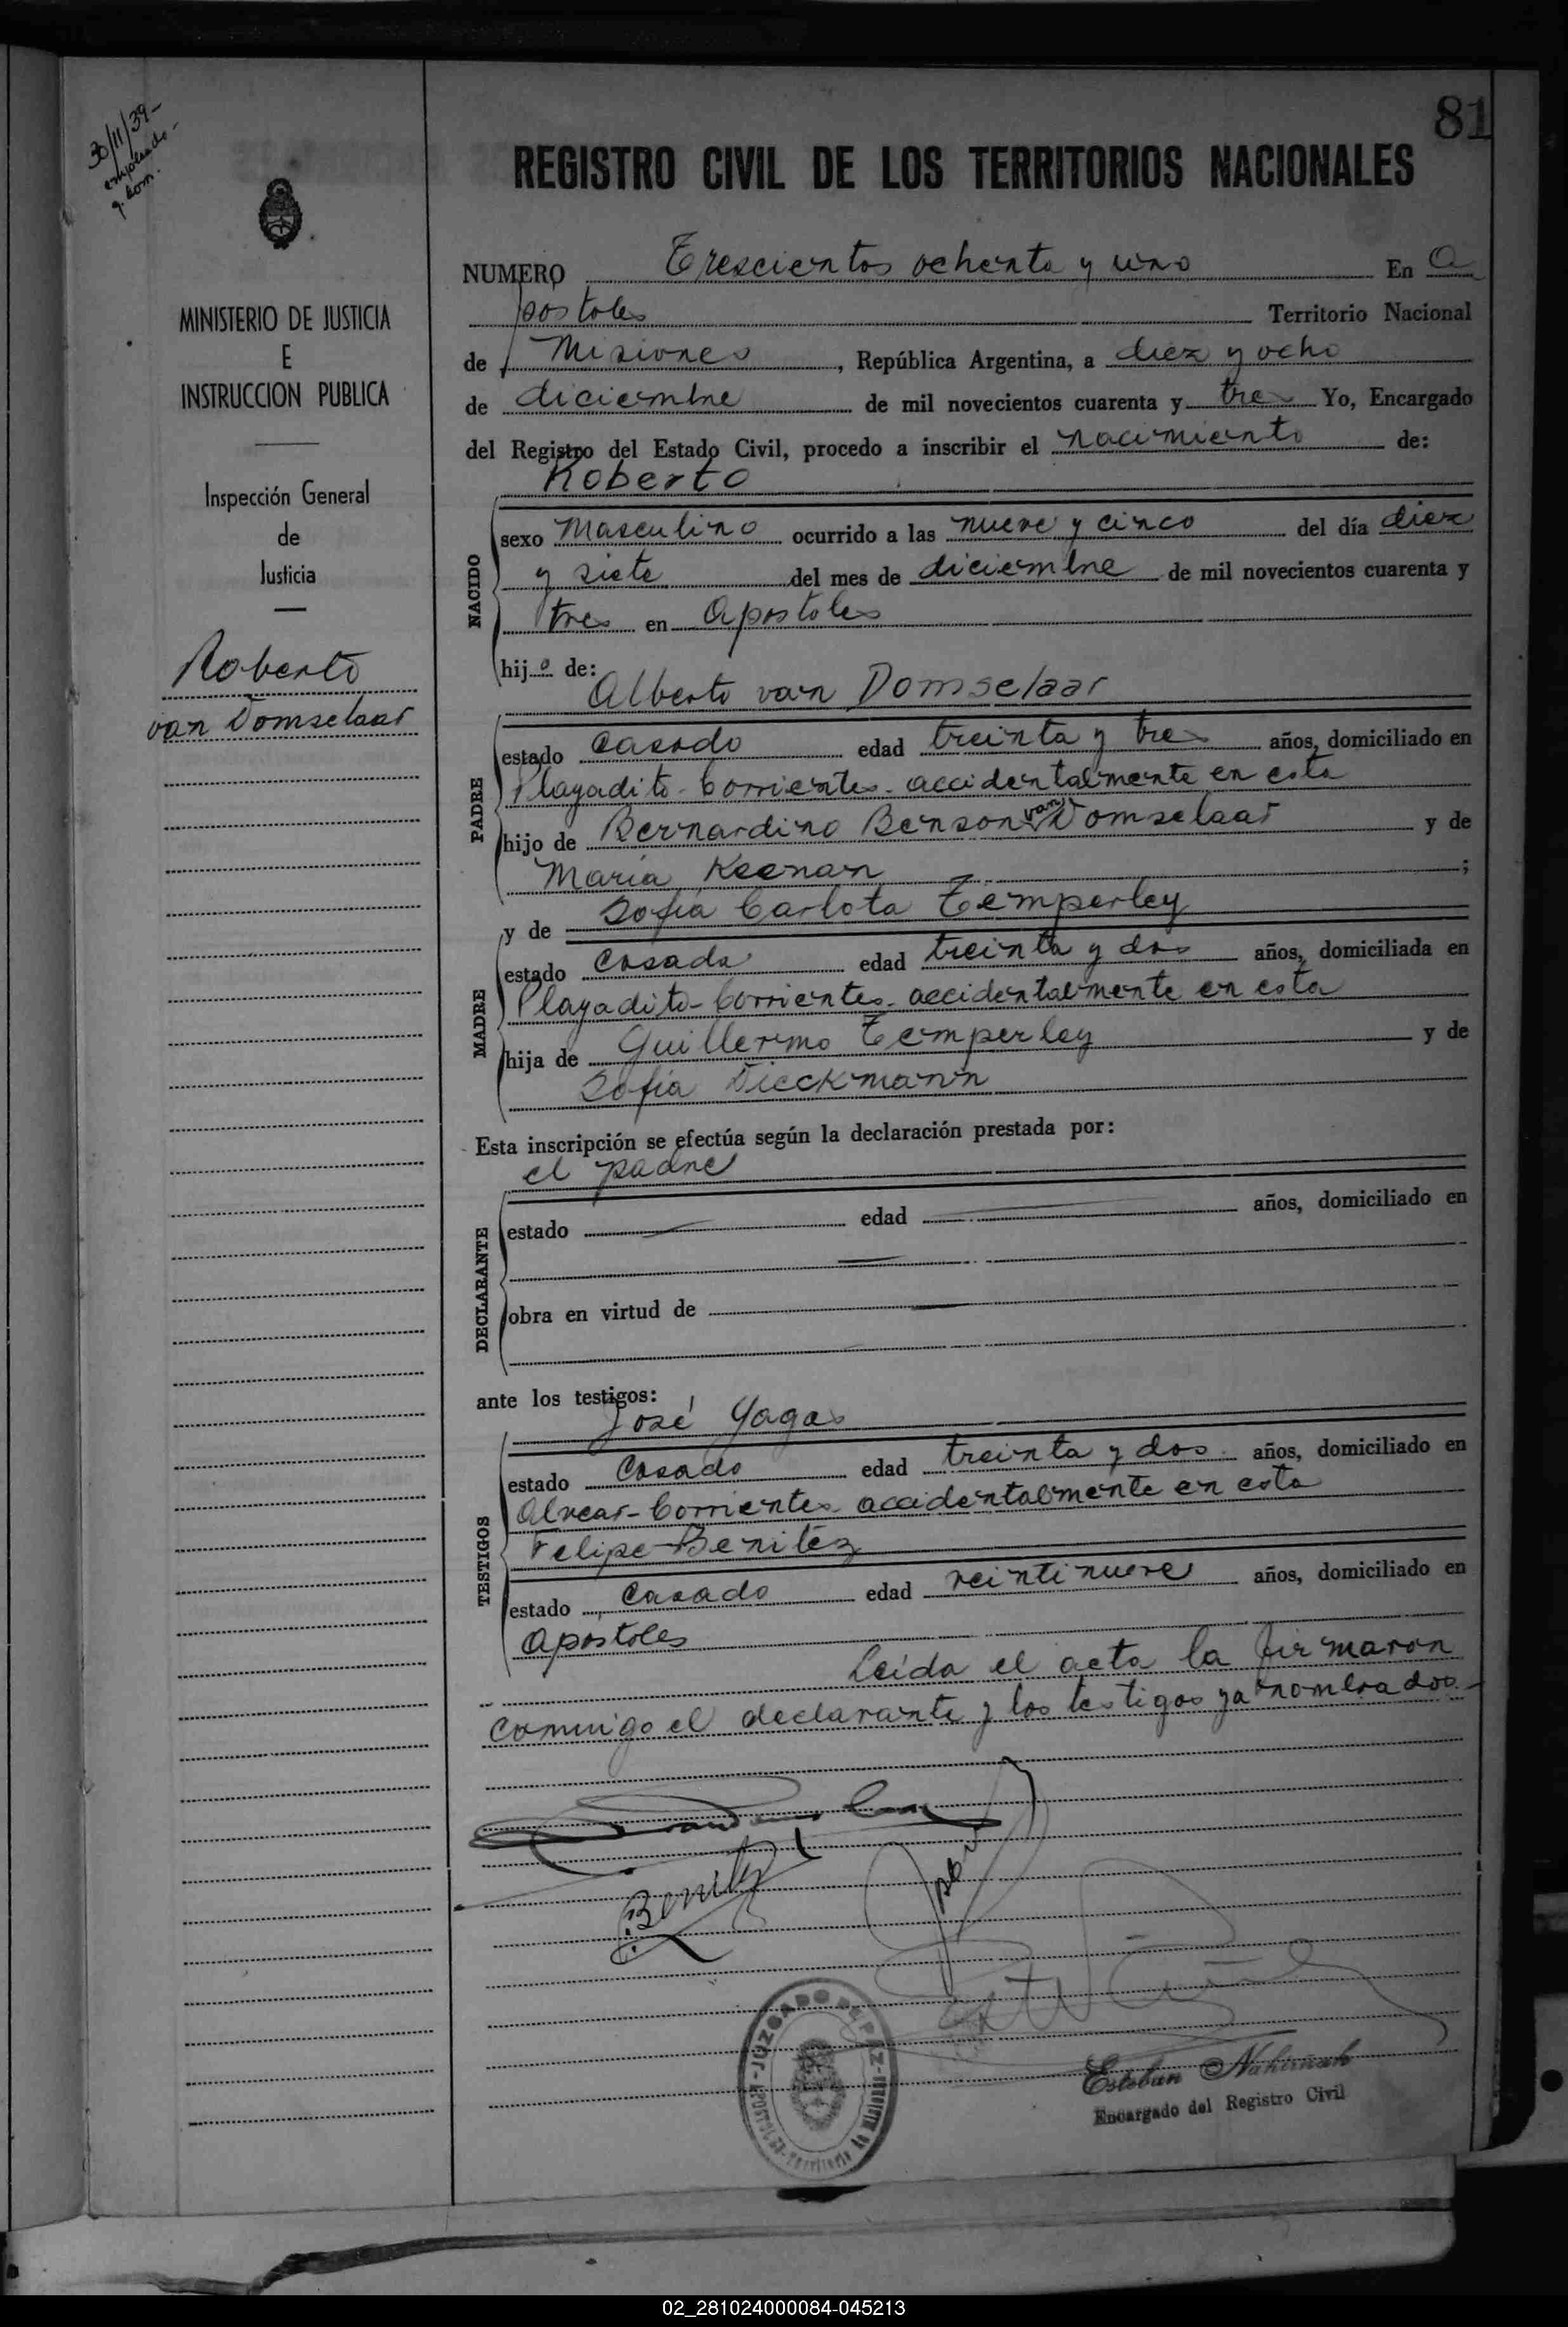 30/11/39-
81
REGISTRO CIVIL DE LOS TERRITORIOS NACIONALES
MINISTERIO DE JUSTICIA
E
INSTRUCCION PUBLICA
Inspección General
de
Justicia
Roberto
van Domselaar
NUMERO Trescientos ochenta y uno En A
postoles Territorio Nacional
de Misiones, República Argentina, a diez y ocho
de diciembre de mil novecientos cuarenta y tres Yo, Encargado
del Registro del Estado Civil, procedo a inscribir el nacimiento de:
Roberto
NACIDO
sexo Masculino ocurrido a las nueve y cinco del día diez
y siete del mes de diciembre de mil novecientos cuarenta y
tres en Apostoles
hijo de:
Alberto van Domselaar
PADRE
estado Casado edad treinta y tres años, domiciliado en
Playadito-Corrientes-accidentalmente en esta
hijo de Bernardino Benson van Domselaar y de
Maria Keenan;
y de Sofia Carlota Temperley
MADRE
estado Casada edad treinta y dos años, domiciliada en
Playadito-Corrientes-accidentalmente en esta
hija de Guillermo Temperley y de
Sofia Dieckmann
Esta inscripción se efectúa según la declaración prestada por:
el padre
DECLARANTE
estado edad años, domiciliado en
obra en virtud de
ante los testigos:
José Yagas
TESTIGOS
estado Casado edad treinta y dos años, domiciliado en
Alvear-Corrientes-accidentalmente en esta
Felipe Benitez
estado Casado edad veintinueve años, domiciliado en
Apostoles
Leida el acta la firmaron
conmigo el declarante y los testigos ya nombrados-
Benitez
JUZGADO DE PAZ - APOSTOLES - Territorio de Misiones
Esteban Nahirñak
Encargado del Registro Civil
02_281024000084-045213